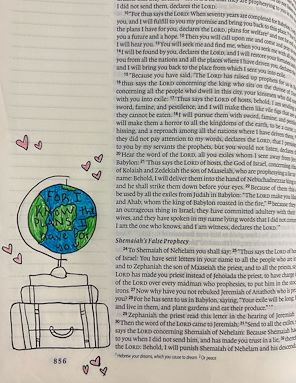 I did not send them, declares the LORD.
"For thus says the LORD: When seventy years are completed for
you, and I will fulfill to you my promise and bring you back to this place.
the plans I have for you, declares the LORD, plans for welfare and
you a future and a hope. Then you will call upon me and come and
I will hear you. You will seek me and find me, when you seek me
I will be found by you, declares the LORD, and I will restore your
you from all the nations and all the places where I have driven you,
and I will bring you back to the place from which I sent you into exile.
"Because you have said, 'The LORD has raised up prophets
thus says the LORD concerning the king who sits on the throne of
concerning all the people who dwell in this city, your kinsmen who did
with you into exile: 'Thus says the LORD of hosts, behold, I am sending
sword, famine, and pestilence, and I will make them like vile figs that
they cannot be eaten. I will pursue them with sword, famine, and
will make them a horror to all the kingdoms of the earth, to be a curse,
hissing, and a reproach among all the nations where I have driven them,
they did not pay attention to my words, declares the LORD, that I
to you by my servants the prophets, but you would not listen, declares
Hear the word of the LORD, all you exiles whom I sent away from
Babylon: 'Thus says the LORD of hosts, the God of Israel, concerning
of Kolaiah and Zedekiah the son of Maaseiah, who are prophesying a lie
name: Behold, I will deliver them into the hand of Nebuchadnezzar king
and he shall strike them down before your eyes. Because of them
be used by all the exiles from Judah in Babylon: "The LORD make you
and Ahab, whom the king of Babylon roasted in the fire," because
an outrageous thing in Israel, they have committed adultery with
wives, and they have spoken in my name lying words that I did not
I am the one who knows, and I am witness, declares the LORD.'"
FOR I
KNOW the
PLANS I
HAVE FOR
YOU
Shemaiah's False Prophecy
To Shemaiah of Nehelam you shall say: "Thus says the LORD of
of Israel: You have sent letters in your name to all the people who are in
and to Zephaniah the son of Maaseiah the priest, and to all the priests,
LORD has made you priest instead of Jehoiada the priest, to have charge
of the LORD over every madman who prophesies, to put him in the
irons. Now why have you not rebuked Jeremiah of Anathoth who is
you? For he has sent to us in Babylon, saying, "Your exile will be long;
and live in them, and plant gardens and eat their produce."'"
Zephaniah the priest read this letter in the hearing of Jeremiah
Then the word of the LORD came to Jeremiah: "Send to all the exiles,
says the LORD concerning Shemaiah of Nehelam: Because Shemaiah
to you when I did not send him, and has made you trust in a lie,
the LORD: Behold, I will punish Shemaiah of Nehelam and his
856